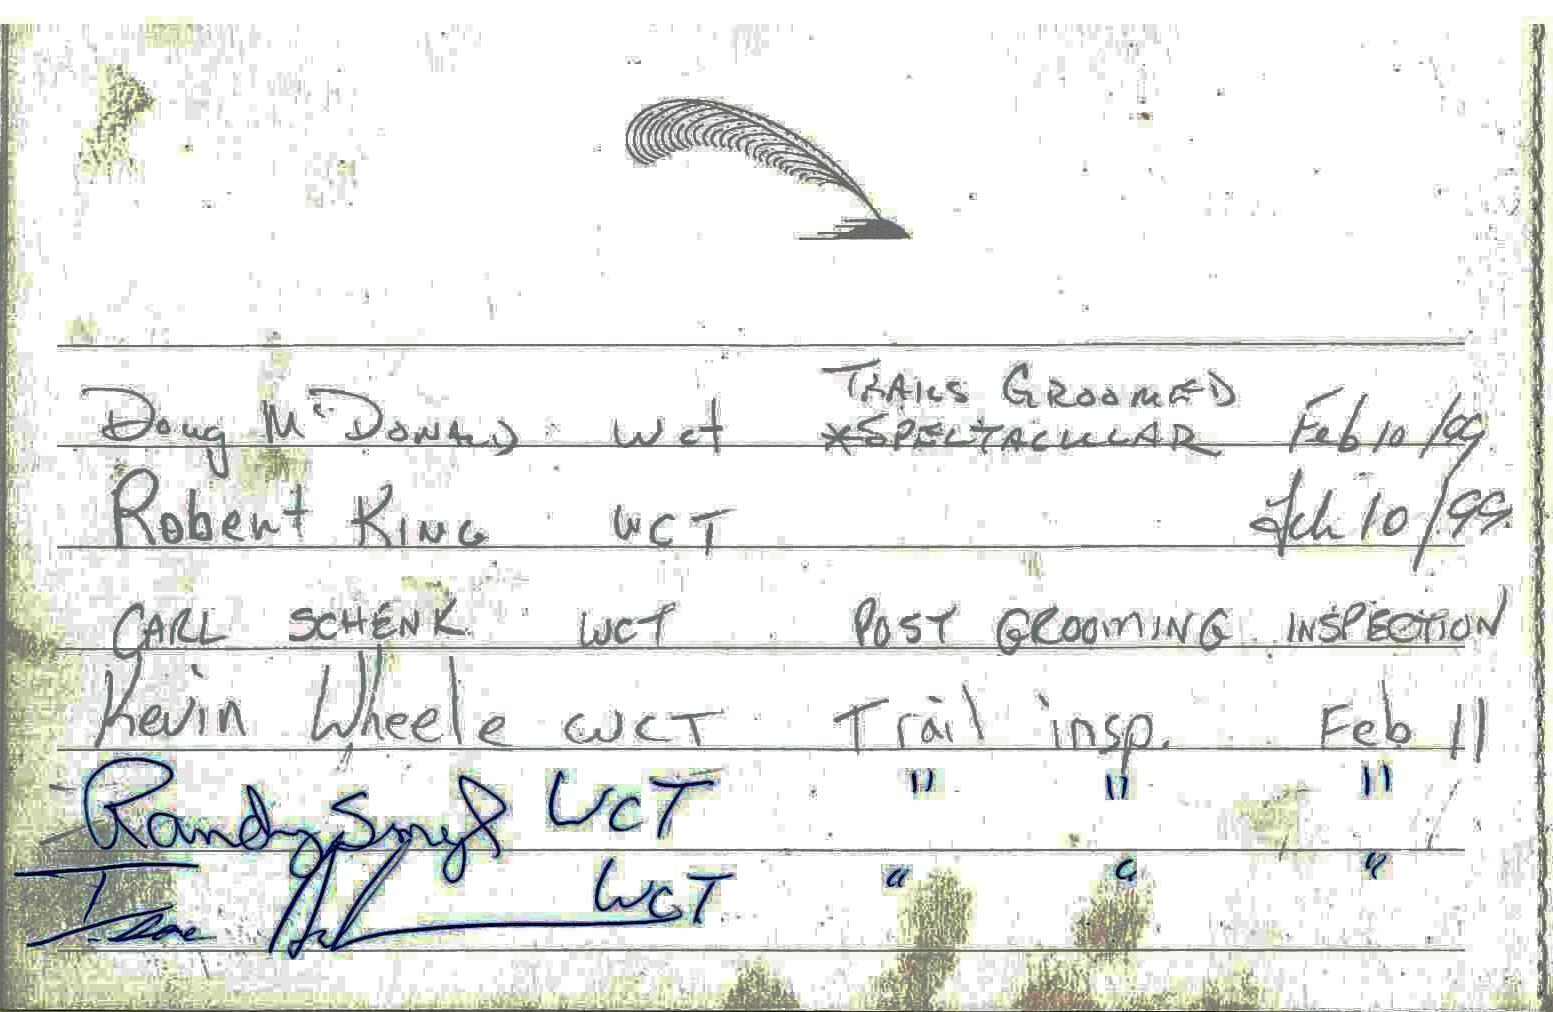 TRAILS GROOMED
Doug McDONALD WCT *SPECTACULAR Feb 10/99
Robert KING WCT Feb 10/99
CARL SCHENK WCT POST GROOMING INSPECTION
Kevin Wheele WCT Trail insp. Feb 11
Randy WCT " " "
WCT " " "